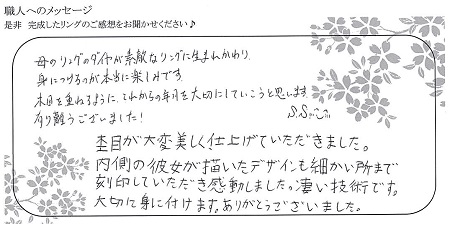 職人へのメッセージ
是非 完成したリングのご感想をお聞かせください♪
母のリングのダイヤが素敵なリングに生まれかわり、
身につけるのが本当に楽しみです。
木目を重ねるように、これからの年月を大切にしていこうと思います
有り難うございました!
杢目が大変美しく仕上げていただきました。
内側の彼女が描いたデザインも細かい所まで
刻印していただき感動しました。凄い技術です。
大切に身に付けます。ありがとうございました。